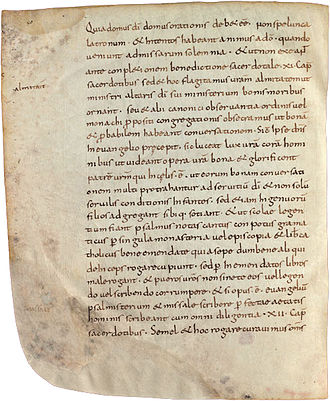 Quia domus di domus orationis debet ee. non spelunca
latronum. & intentos habeant animos ad dō. quando
veniunt ad missarum solemnia. & ut non exeant
ante conpletionem benedictione sacerdotale. XI. Cap
almitatē
sacerdotibus. Sed & hoc flagitamus vram almitatem ut
ministri altaris di suum ministerium bonis moribus
ornant. seu & alii canonici observantia ordinis vel
monachi ppositi congregationis obsecramus ut bonā
& pbabilem habeant conversationem. Sic ipse dns
in evangelio precepit. sic luceat lux vra corā homi
nibus ut videant opera vra bona & glorificent
patrē vrm qui in celis ē. ut eorum bona conversati
onem multi ptrahantur ad servitiū di & non solū
servilis conditionis infantes. sed etiam ingenuorū
filios adgregant sibi q; sotiant. & ut scolae legen
tium fiant psalmos notas cantus conpotus grama
ticus p singula monasteria vel episcopia & lib ca
tholicus bene emendate quia sepe dum bene aliqui
dō rogare cupiunt. sed p inemendatos libros
male rogant. & pueros vros non sinete eos vel legen
do vel scribendo corrumpere. & si opus ē. evangeliū
psalmisterium & missale scribere pfectae aetatis
hominis scribeant cum omni diligentia. XII. Cap
sacerdotibus. Semel & hoc rogare curavimus om̄s